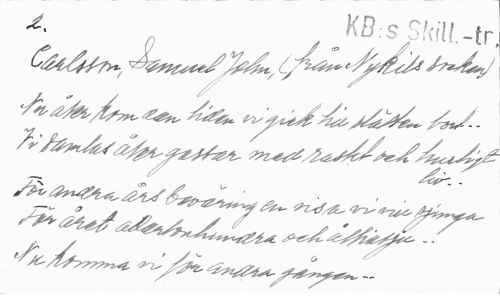 2.
KB:s Skill.-tr.
Carlsson, Samuel John, (från Nykils socken)
Nu åter kom den tiden vi gick till slätten bort..
Vi samlas åter gossar med raskt och hurtigt
liv..
För andra års beväring en visa vi vill sjunga
För året adertonhundra och åttiosju..
Nu komma vi för andra gången..